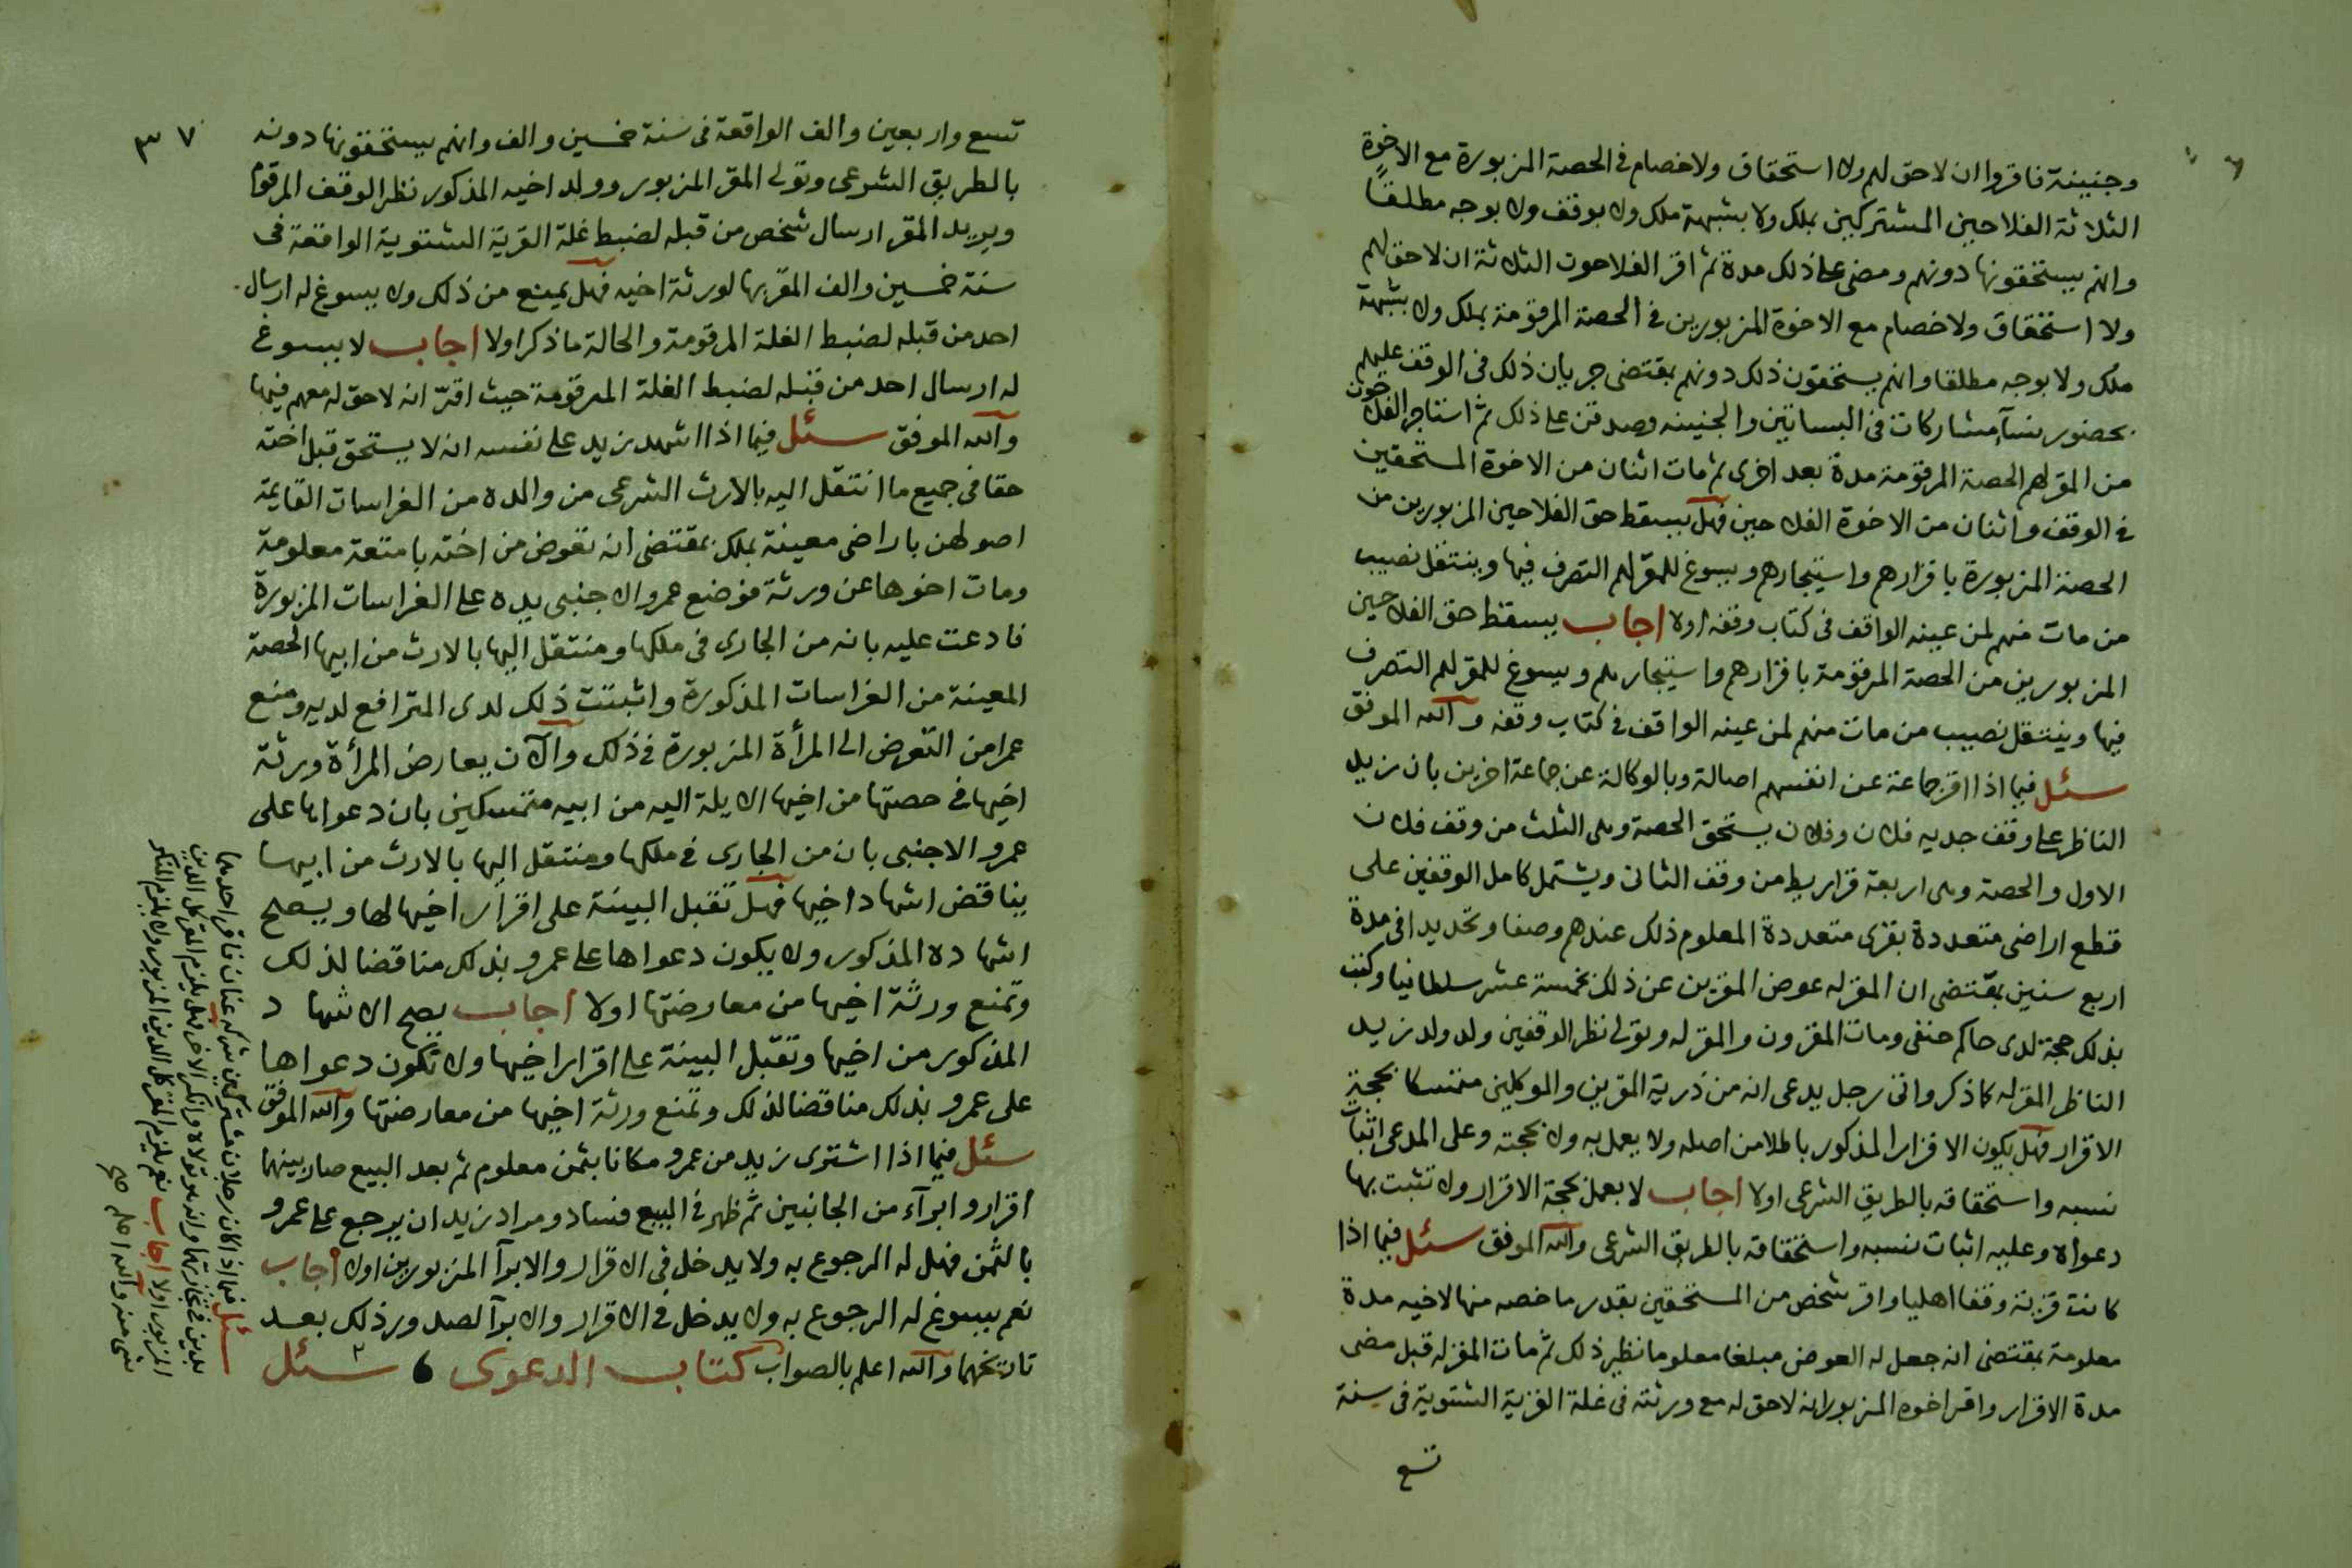 وجنينة فاقروا ان لا حق لهم ولا استحقاق ولا خصام في الحصة المزبورة مع الاخوة
الثلاثة الفلاحين المشتركين بملك ولا بشبهة ملك ولا بوقف ولا بوجه مطلقا
وانهم يستحقونها دونهم ومضى على ذلك مدة ثم اقر الفلاحون الثلاثة ان لا حق لهم
ولا استحقاق ولا خصام مع الاخوة المزبورين في الحصة المرقومة بملك ولا بشبهة
ملك ولا بوجه مطلقا وانهم يستحقون ذلك دونهم بمقتضى جريان ذلك في الوقف عليهم
بحضور نسآء مشاركات في البساتين والجنينه وصدقن على ذلك ثم استاجر الفلاحون
من المقر لهم الحصة المرقومة مدة بعد اخرى ثم مات اثنان من الاخوة المستحقين
في الوقف واثنان من الاخوة الفلاحين فهل يسقط حق الفلاحين المزبورين من
الحصة المزبورة باقرارهم واستيجارهم ويسوغ للمقر لهم التصرف فيها وينتقل نصيب
من مات منهم لمن عينه الواقف في كتاب وقفه اولا اجاب يسقط حق الفلاحين
المزبورين من الحصة المرقومة باقرارهم واستيجارهم ويسوغ للمقر لهم التصرف
فيها وينتقل نصيب من مات منهم لمن عينه الواقف في كتاب وقفه والله الموفق
سئل فيما اذا اقر جماعة عن انفسهم اصالة وبالوكالة عن جماعة اخرين بان زيد
الناظر على وقف جديه فلان وفلان يستحق الحصة وهى الثلث من وقف فلان
الاول والحصة وهى اربعة قراريط من وقف الثانى ويشتمل كامل الوقفين على
قطع اراضى متعددة بقرى متعددة المعلوم ذلك عندهم وصفا وتحديدا في مدة
اربع سنين بمقتضى ان المقر له عوض المقرين عن ذلك بخمسة عشر سلطانيا وكتب
بذلك حجة لدى حاكم حنفى ومات المقرون والمقر له وتولى نظر الوقفين ولد ولد زيد
الناظر المقر له كما ذكر واتى رجل يدعى انه من ذرية المقرين والموكلين متمسكا بحجة
الاقرار فهل يكون الاقرار المذكور باطلا من اصله ولا يعمل به ولا بحجته وعلى المدعى اثبات
نسبه واستحقاقه بالطريق الشرعى اولا اجاب لا يعمل بحجة الاقرار ولا تثبت بها
دعواه وعليه اثبات نسبه واستحقاقه بالطريق الشرعى والله الموفق سئل فيما اذا
كانت قرية وقفا اهليا واقر شخص من المستحقين بقدر ما خصه منها لاخيه مدة
معلومة بمقتضى انه جعل له العوض مبلغا معلوما نظير ذلك ثم مات المقر له قبل مضى
مدة الاقرار واقر اخوه المزبور انه لا حق له مع ورثته في غلة القرية الشتوية في سنة
تسع
٣٧
تسع واربعين والف الواقعة في سنة خمسين والف وانهم يستحقونها دونه
بالطريق الشرعى وتولى المقر المزبور وولد اخيه المذكور نظر الوقف المرقوم
ويريد المقر ارسال شخص من قبله لضبط غلة القرية الشتوية الواقعة في
سنة خمسين والف المقر بها لورثة اخيه فهل يمنع من ذلك ولا يسوغ له ارسال
احد من قبله لضبط الغلة المرقومة والحالة ما ذكر اولا اجاب لا يسوغ
له ارسال احد من قبله لضبط الغلة المرقومة حيث اقرّ انه لا حق له معهم فيها
والله الموفق سئل فيما اذا اشهد زيد على نفسه انه لا يستحق قبل اخته
حقا في جميع ما انتقل اليه بالارث الشرعى من والده من الغراسات القايمة
اصولهن باراضى معينة بملك بمقتضى انه تعوض من اخته بامتعة معلومة
ومات اخوها عن ورثة فوضع عمرو الاجنبى يده على الغراسات المزبورة
فادعت عليه بانه من الجارى في ملكها ومنتقل اليها بالارث من ابيها الحصة
المعينة من الغراسات المذكورة واثبتت ذلك لدى المترافع لديه ومنع
عمرا من التعرض الى المرأة المزبورة في ذلك والآن يعارض المرأة ورثة
اخيها في حصتها من اخيها الايلة اليه من ابيه متمسكين بان دعواها على
عمرو الاجنبى بان من الجارى في ملكها ومنتقل اليها بالارث من ابيها
يناقض اشهاد اخيها فهل تقبل البينة على اقرار اخيها لها ويصح
اشهاده المذكور ولا يكون دعواها على عمرو بذلك مناقضا لذلك
وتمنع ورثة اخيها من معارضتها اولا اجاب يصح الاشهاد
المذكور من اخيها وتقبل البينة على اقرار اخيها ولا تكون دعواها
على عمرو بذلك مناقضا لذلك وتمنع ورثة اخيها من معارضتها والله الموفق
سئل فيما اذا اشترى زيد من عمرو مكانا بثمن معلوم ثم بعد البيع صار بينهما
اقرار وابرآء من الجانبين ثم ظهر في البيع فساد ومراد زيد ان يرجع على عمرو
بالثمن فهل له الرجوع به ولا يدخل في الاقرار والابرآ المزبورين اولا اجاب
نعم يسوغ له الرجوع به ولا يدخل في الاقرار والابرآ لصدور ذلك بعد
تاريخهما والله اعلم بالصواب كتاب الدعوى ، سئل
سئل فيما اذا كان رجلان مشتركين شركة عنان فاقر احدهما
بدين في تجارتهما وانهما تولاه وانكر الاخر فهل يلزم المقر كل الدين
المزبور اولا اجاب نعم يلزم المقر كل الدين المزبور ولا يلزم المنكر
شئ منه والله اعلم صح